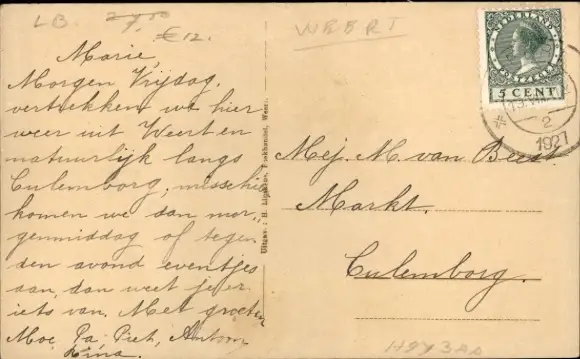 LB.
€12.
WEERT
Marie,
Morgen Vrijdag,
vertrekken we hier
weer uit Weert en
natuurlijk langs
Culemborg, misschien
komen we dan mor-
genmiddag of tegen
den avond eventjes
aan, dan weet je er
iets van. Met groeten
Moe, Pa, Piet, Antoon
Lina.
Uitgav.: H. Boekhandel, Weert.
NEDERLAND
POSTZEGEL
5 CENT
2
1927
Mej. M. van Beest
Markt.
Culemborg.